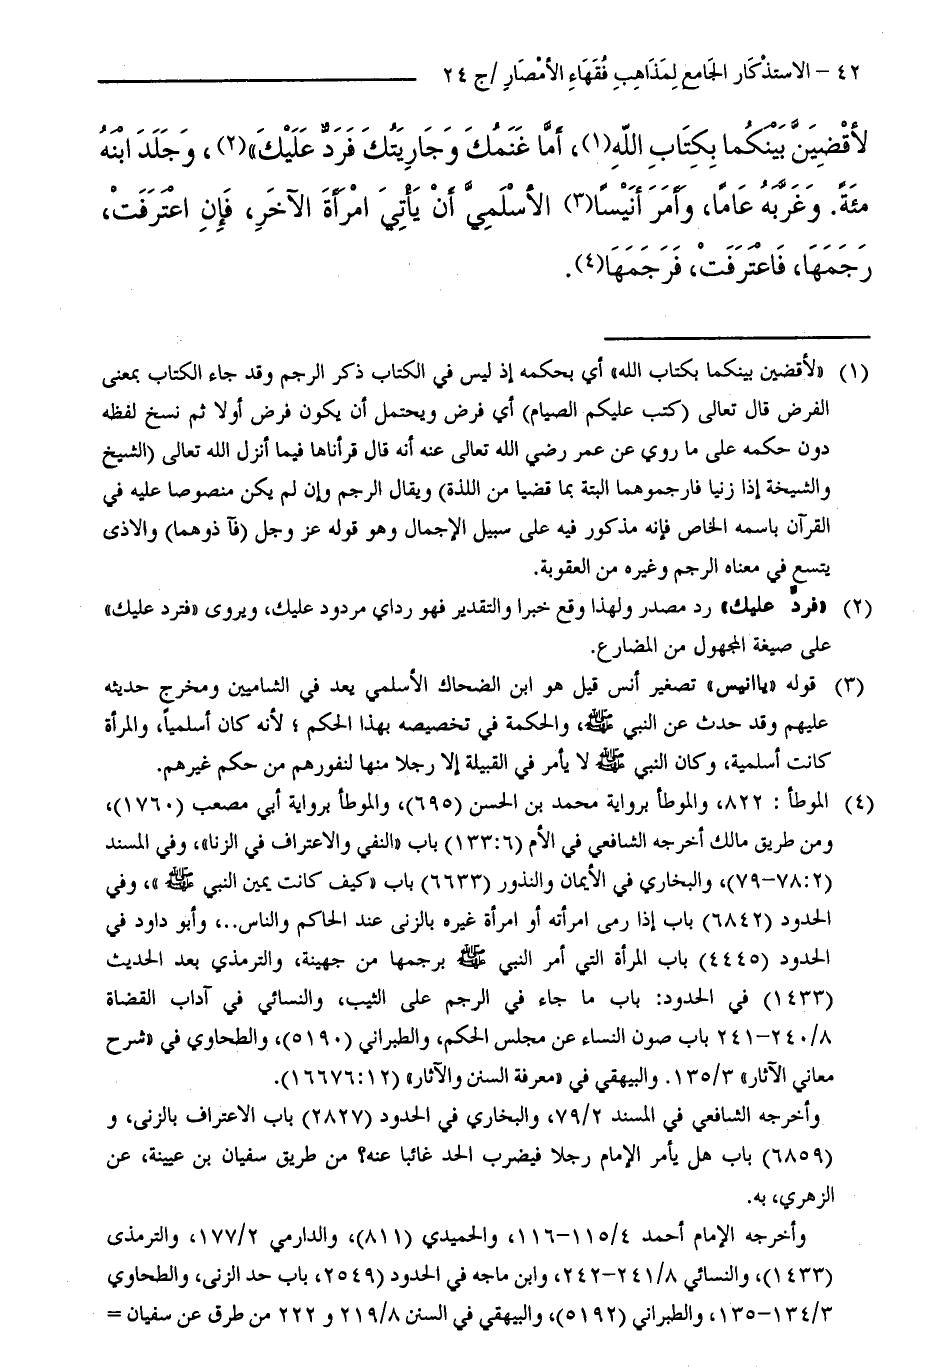 ٤٢ – الاستذْكَار الجَامع لِمَذَاهِبِ فُقَهَاءِ الأمْصَارِ /ج ٢٤
لأَقْضِيَنَّ بَيْنَكُما بِكِتَابِ اللَّهِ(١)، أَمَّا غَنَمُكَ وَجَارِيَتُكَ فَرَدٌّ عَلَيْكَ»(٢)، وَجَلَدَ ابْنَهُ
مئةً. وَغَرَّبَهُ عَامًا، وأَمَرَ أُنَيْسًا(٣) الأَسْلَمِيَّ أَنْ يَأْتِيَ امْرَأَةَ الآخَرِ، فَإِنِ اعْتَرَفَتْ،
رَجَمَهَا، فَاعْتَرَفَتْ، فَرَجَمَهَا(٤).
(١) «لأقضين بينكما بكتاب الله» أي بحكمه إذ ليس في الكتاب ذكر الرجم وقد جاء الكتاب بمعنى
الفرض قال تعالى (كتب عليكم الصيام) أي فرض ويحتمل أن يكون فرض أولا ثم نسخ لفظه
دون حكمه على ما روي عن عمر رضي الله تعالى عنه أنه قال قرأناها فيما أنزل الله تعالى (الشيخ
والشيخة إذا زنيا فارجموهما البتة بما قضيا من اللذة) ويقال الرجم وإن لم يكن منصوصا عليه في
القرآن باسمه الخاص فإنه مذكور فيه على سبيل الإجمال وهو قوله عز وجل (فآ ذوهما) والاذى
يتسع في معناه الرجم وغيره من العقوبة.
(٢) «فردٌّ عليك» رد مصدر ولهذا وقع خبرا والتقدير فهو رداي مردود عليك، ويروى «فترد عليك»
على صيغة المجهول من المضارع.
(٣) قوله «ياانيس» تصغير أنس قيل هو ابن الضحاك الأسلمي يعد في الشاميين ومخرج حديثه
عليهم وقد حدث عن النبي ﷺ، والحكمة في تخصيصه بهذا الحكم ؛ لأنه كان أسلمياً، والمرأة
كانت أسلمية، وكان النبي ﷺ لا يأمر في القبيلة إلا رجلا منها لنفورهم من حكم غيرهم.
(٤) الموطأ : ٨٢٢، والموطأ برواية محمد بن الحسن (٦٩٥)، والموطأ برواية أبي مصعب (١٧٦٠)،
ومن طريق مالك أخرجه الشافعي في الأم (١٣٣:٦) باب «النفي والاعتراف في الزنا»، وفي المسند
(٧٨:٢–٧٩)، والبخاري في الأيمان والنذور (٦٦٣٣) باب «كيف كانت يمين النبي ﷺ »، وفي
الحدود (٦٨٤٢) باب إذا رمى امرأته أو امرأة غيره بالزنى عند الحاكم والناس..، وأبو داود في
الحدود (٤٤٤٥) باب المرأة التي أمر النبي ﷺ برجمها من جهينة، والترمذي بعد الحديث
(١٤٣٣) في الحدود: باب ما جاء في الرجم على الثيب، والنسائي في آداب القضاة
٢٤٠/٨–٢٤١ باب صون النساء عن مجلس الحكم، والطبراني (٥١٩٠)، والطحاوي في «شرح
معاني الآثار» ١٣٥/٣. والبيهقي في «معرفة السنن والآثار» (١٦٦٧٦:١٢).
وأخرجه الشافعي في المسند ٧٩/٢، والبخاري في الحدود (٢٨٢٧) باب الاعتراف بالزنى، و
(٦٨٥٩) باب هل يأمر الإمام رجلا فيضرب الحد غائبا عنه؟ من طريق سفيان بن عيينة، عن
الزهري، به.
وأخرجه الإمام أحمد ١١٥/٤–١١٦، والحميدي (٨١١)، والدارمي ١٧٧/٢، والترمذى
(١٤٣٣)، والنسائي ٢٤١/٨–٢٤٢، وابن ماجه في الحدود (٢٥٤٩، باب حد الزنى، والطحاوي
١٣٤/٣–١٣٥، والطبراني (٥١٩٢)، والبيهقي في السنن ٢١٩/٨ و ٢٢٢ من طرق عن سفيان =